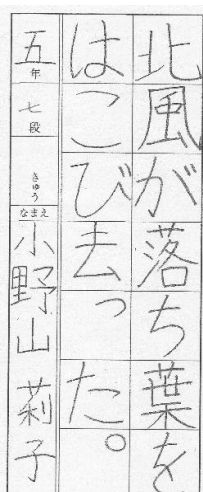 北風が落ち葉を
はこび去った。
五年
七段
きゅう
なまえ
小野山莉子